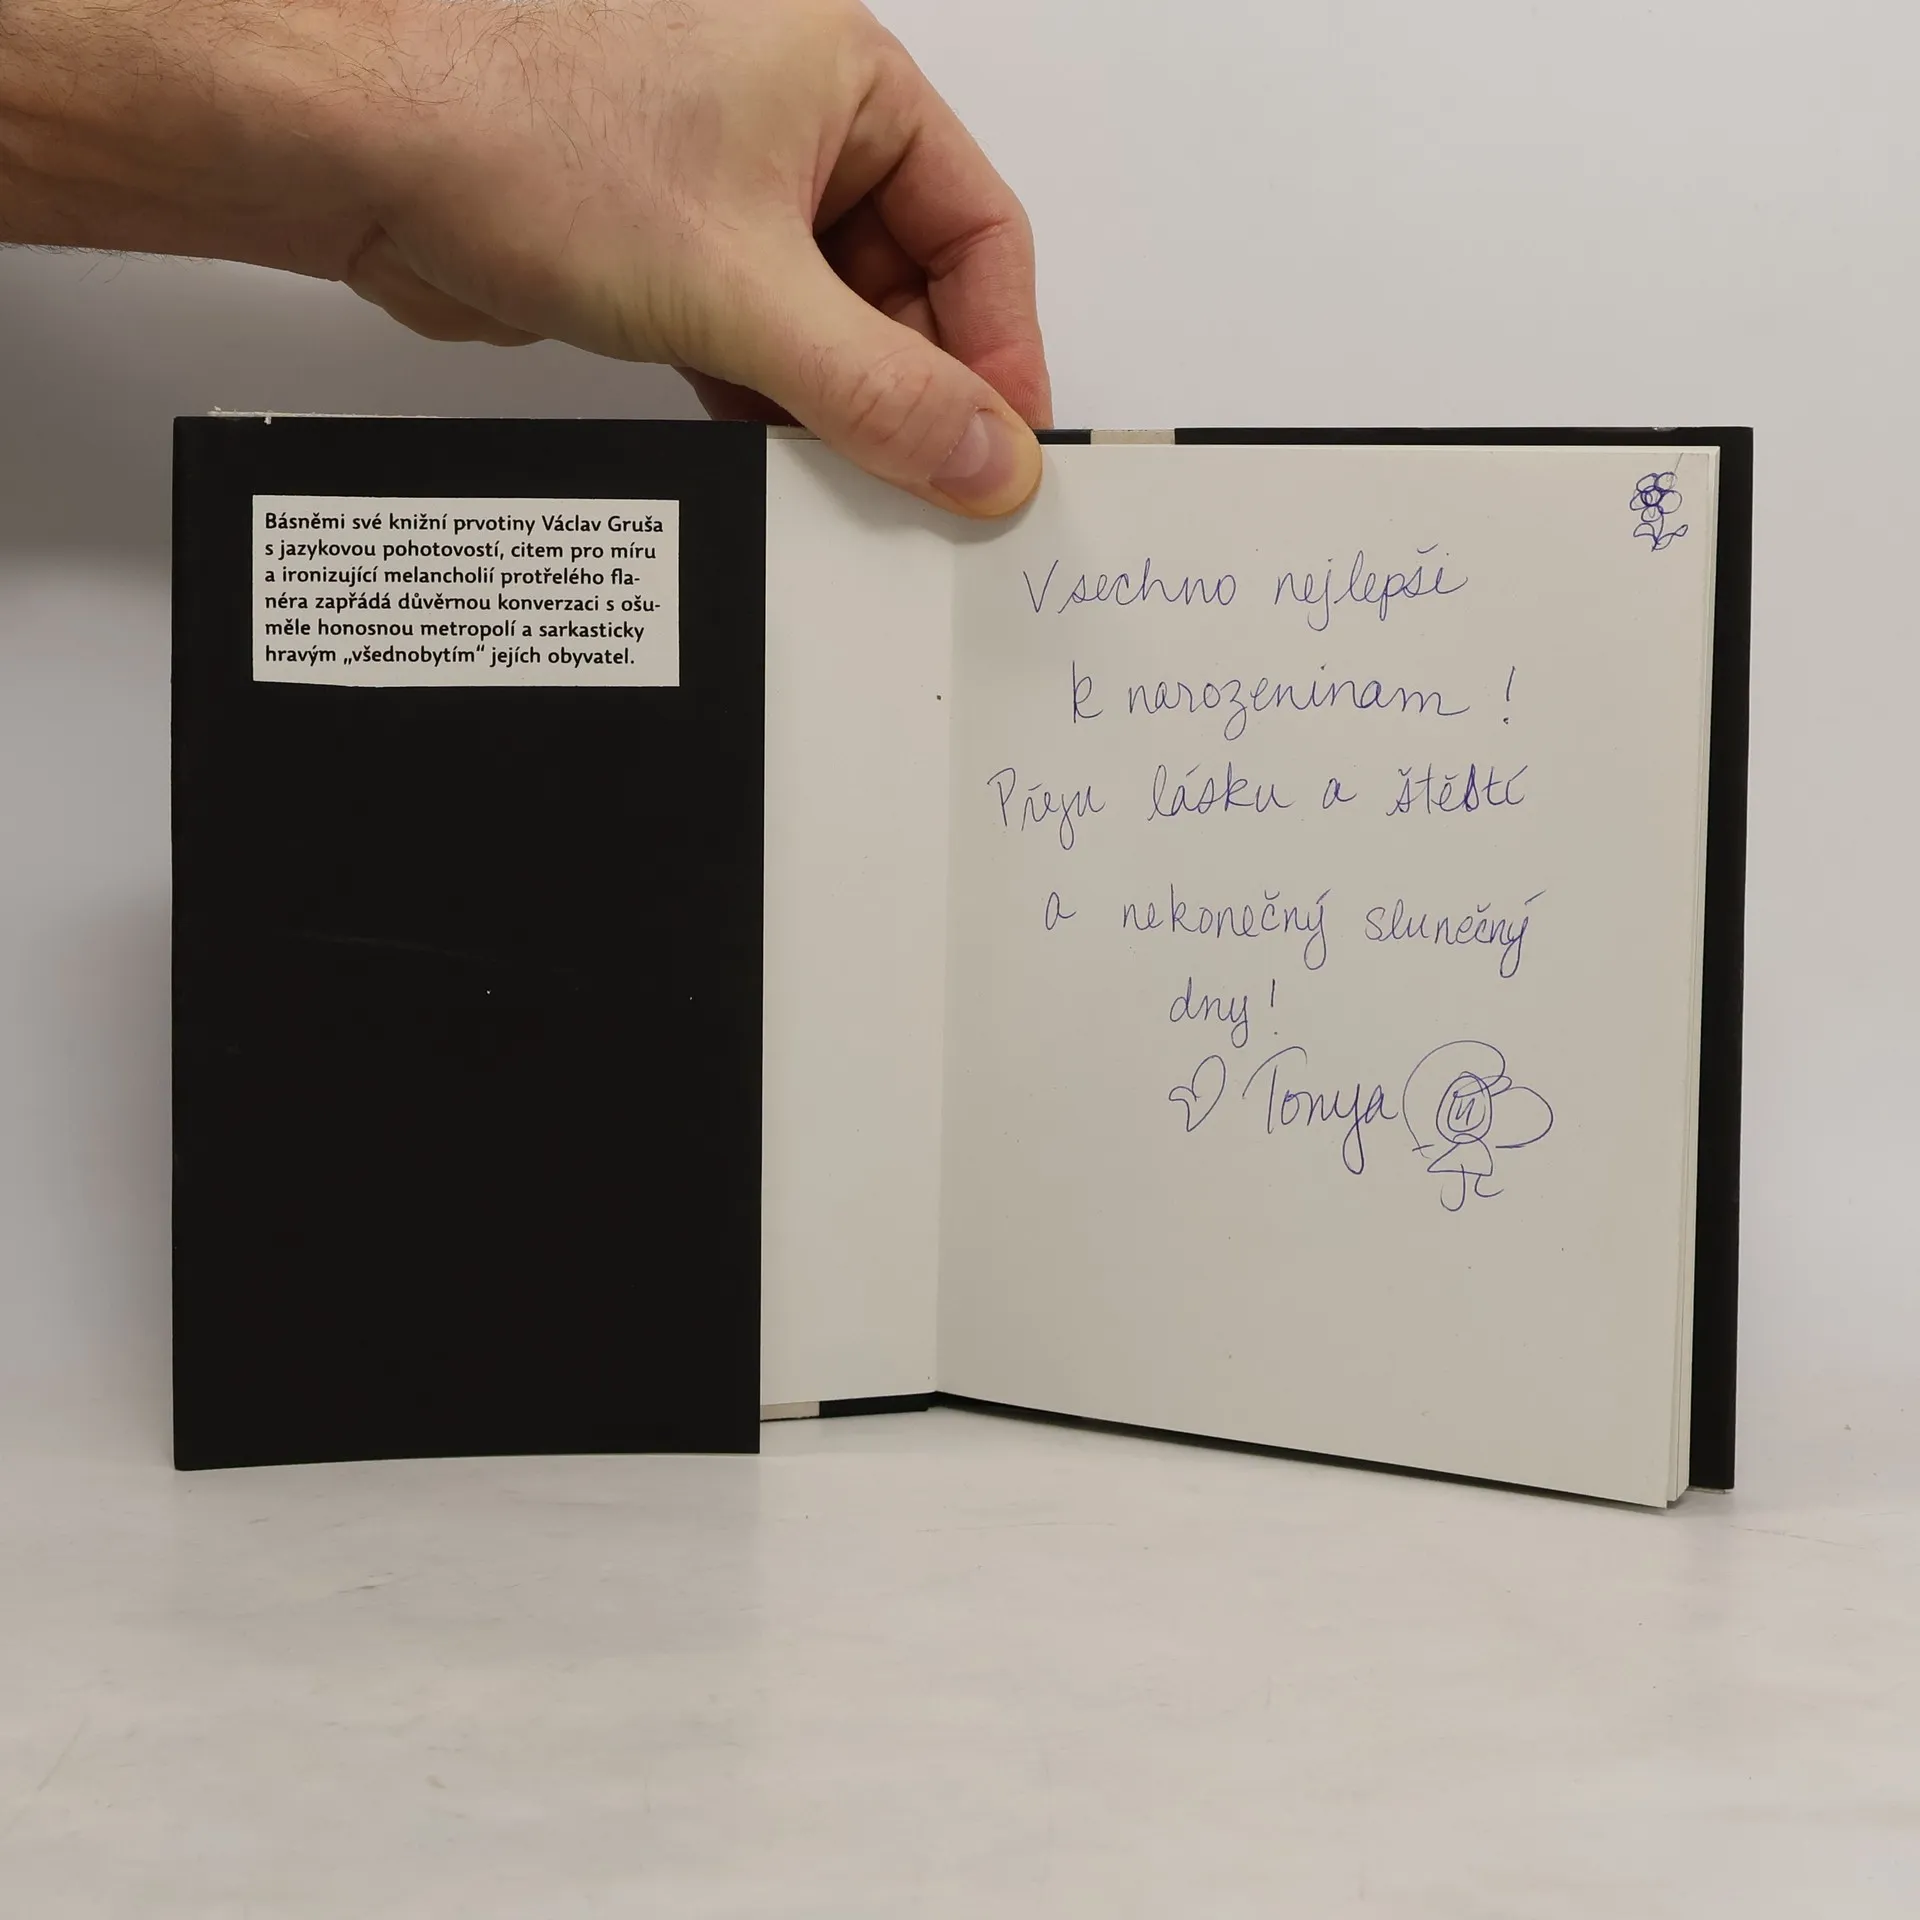 Básněmi své knižní prvotiny Václav Gruša
s jazykovou pohotovostí, citem pro míru
a ironizující melancholií protřelého fla-
néra zapřádá důvěrnou konverzaci s ošu-
měle honosnou metropolí a sarkasticky
hravým „všednobytím“ jejích obyvatel.
Vsechno nejlepší
k narozeninam!
Přeju lásku a štěstí
a nekonečný slunečný
dny!
Tonya